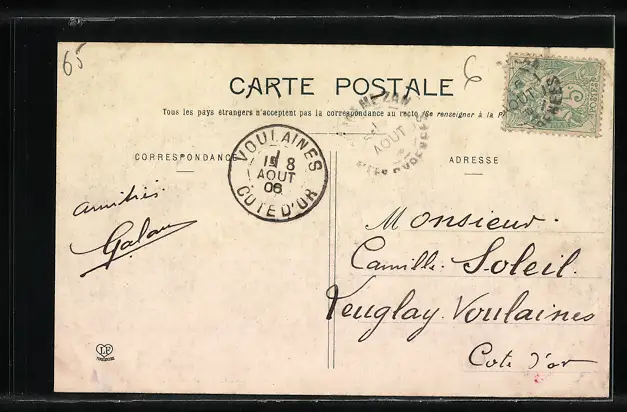 65
6
CARTE POSTALE
Tous les pays étrangers n'acceptent pas la correspondance au recto (Se renseigner à la
CORRESPONDANCE
ADRESSE
VOULAINES
18
AOUT
06
COTE D'OR
AOUT
POSTES
amitiés.
Galau
Monsieur.
Camille Soleil.
Veuglay. Voulaines
Cote d'or
LF